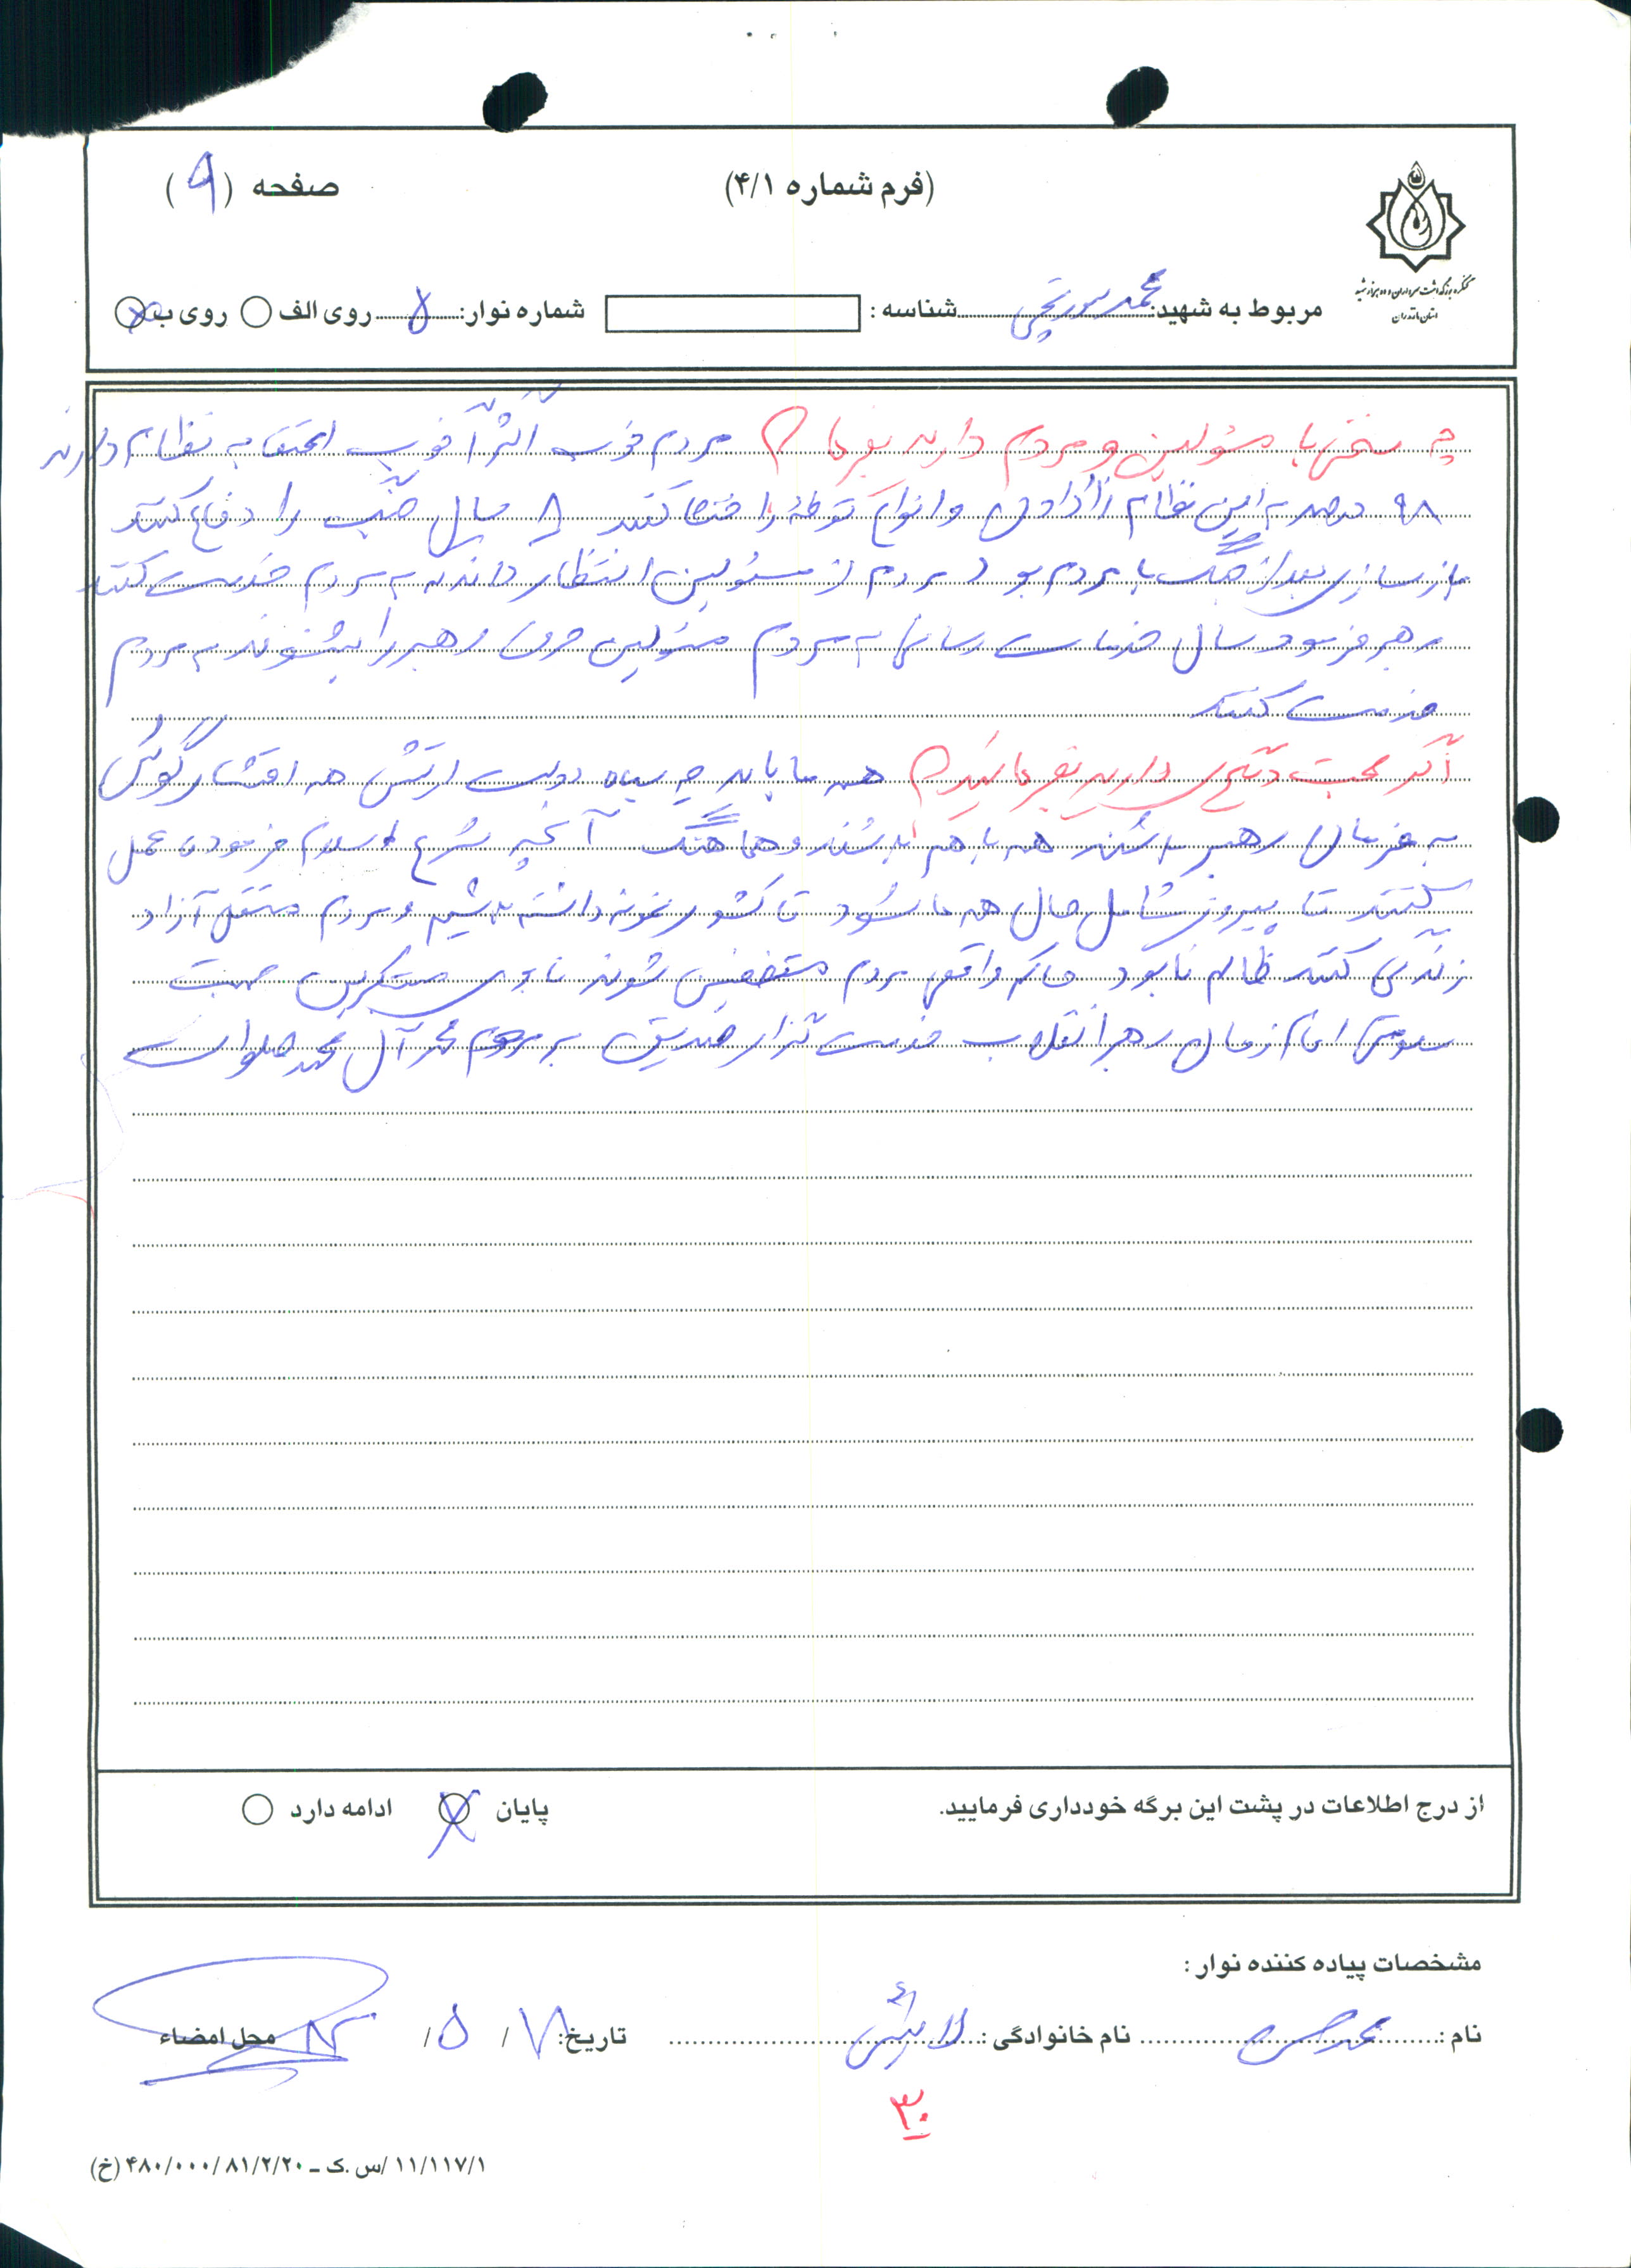 (فرم شماره ۴/۱)
صفحه (۹)
کنگره بزرگداشت سرداران و ده هزار شهید
استان مازندران
مربوط به شهید: محمد سورتچی شناسه: شماره نوار: ۵ روی الف روی ب
چه سخنی با مسئولین و مردم دارید بفرمائید مردم خوب اکثراً خوب اعتقاد به نظام دارند
۹۸ درصد به این نظام رأی دادن و انواع توطئه را خنثا کنند ۸ سال جنگ را دفاع کنند
بازسازی بعد از جنگ با مردم بود مردم از مسئولین انتظار دارند به مردم خدمت کنند
رهبر فرمود سال خدمات رسانی به مردم مسئولین حرف رهبر را بشنوند به مردم
خدمت کنند
اگر صحبت دیگری دارید بفرمائید همه ما باید چه سپاه دولت ارتش همه اقشار گوش
به فرمان رهبر باشند همه با هم باشند و هماهنگ آنچه شرع اسلام فرموده عمل
کنند تا پیروزی شامل حال همه ما شود تا کشور نمونه داشته باشیم و مردم مستقل آزاد
زندگی کنند ظالم نابود حاکم واقعی مردم مستضعفین شوند نابودی مستکبرین جهت
سلامتی امام زمان رهبر انقلاب خدمت گزار صدیق به مردم محمد آل محمد صلوات
از درج اطلاعات در پشت این برگه خودداری فرمایید.
پایان ادامه دارد
مشخصات پیاده کننده نوار:
نام: محمد حسن نام خانوادگی: تاریخ: ۷/ ۵/ محل امضاء
۳۰
۱۱/۱۱۷/۱ /س.ک ـ ۴۸۰/۰۰۰/۸۱/۲/۲۰ (خ)